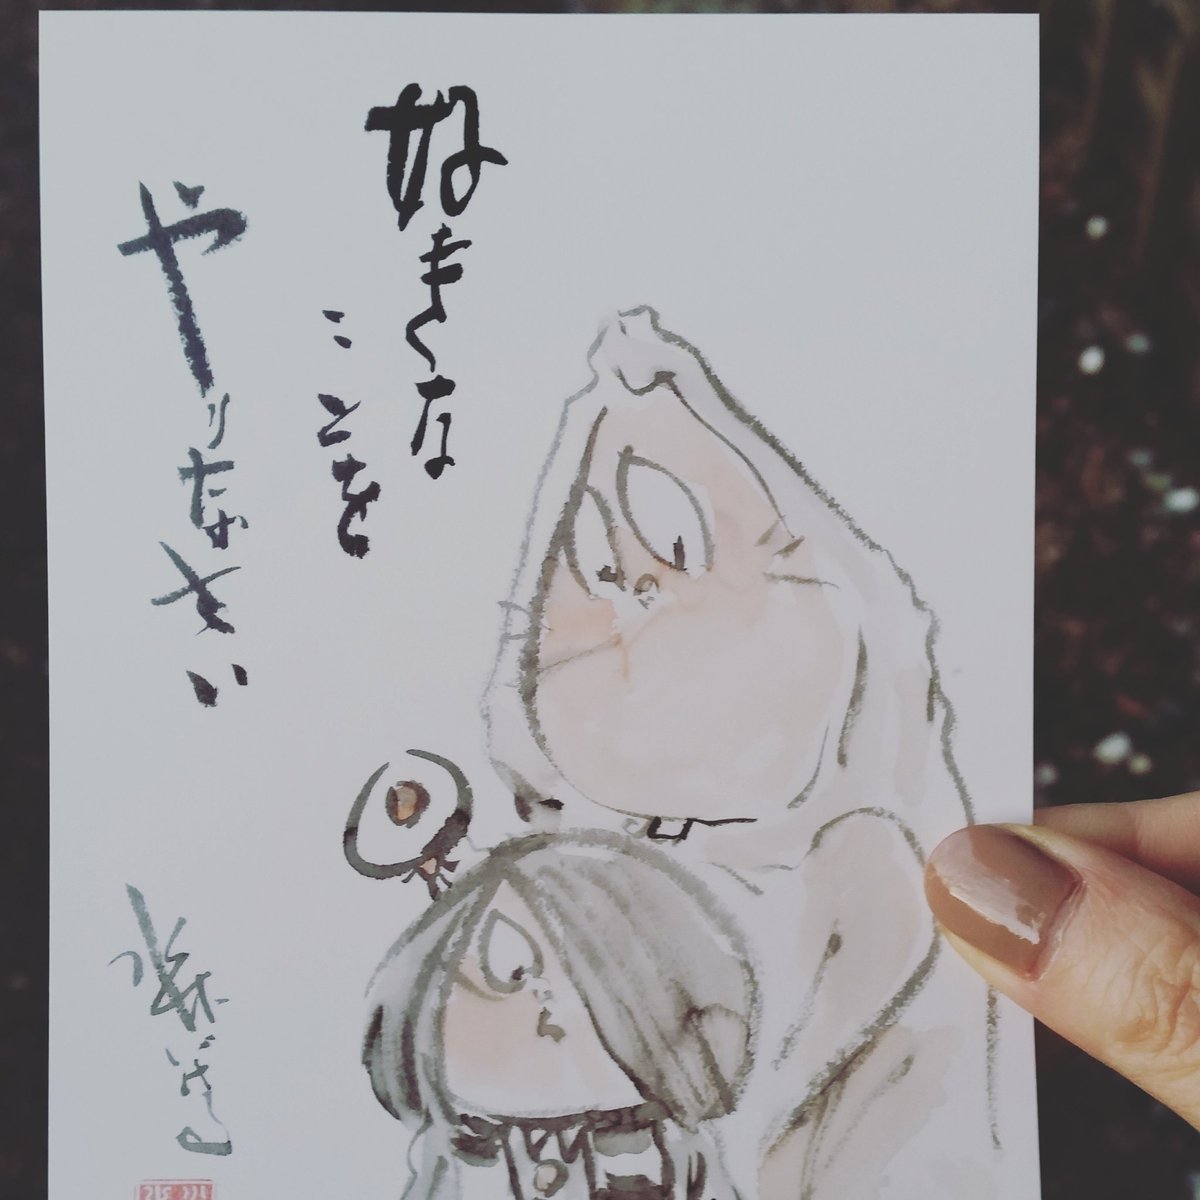 好きな
ことを
やりなさい
水木しげる